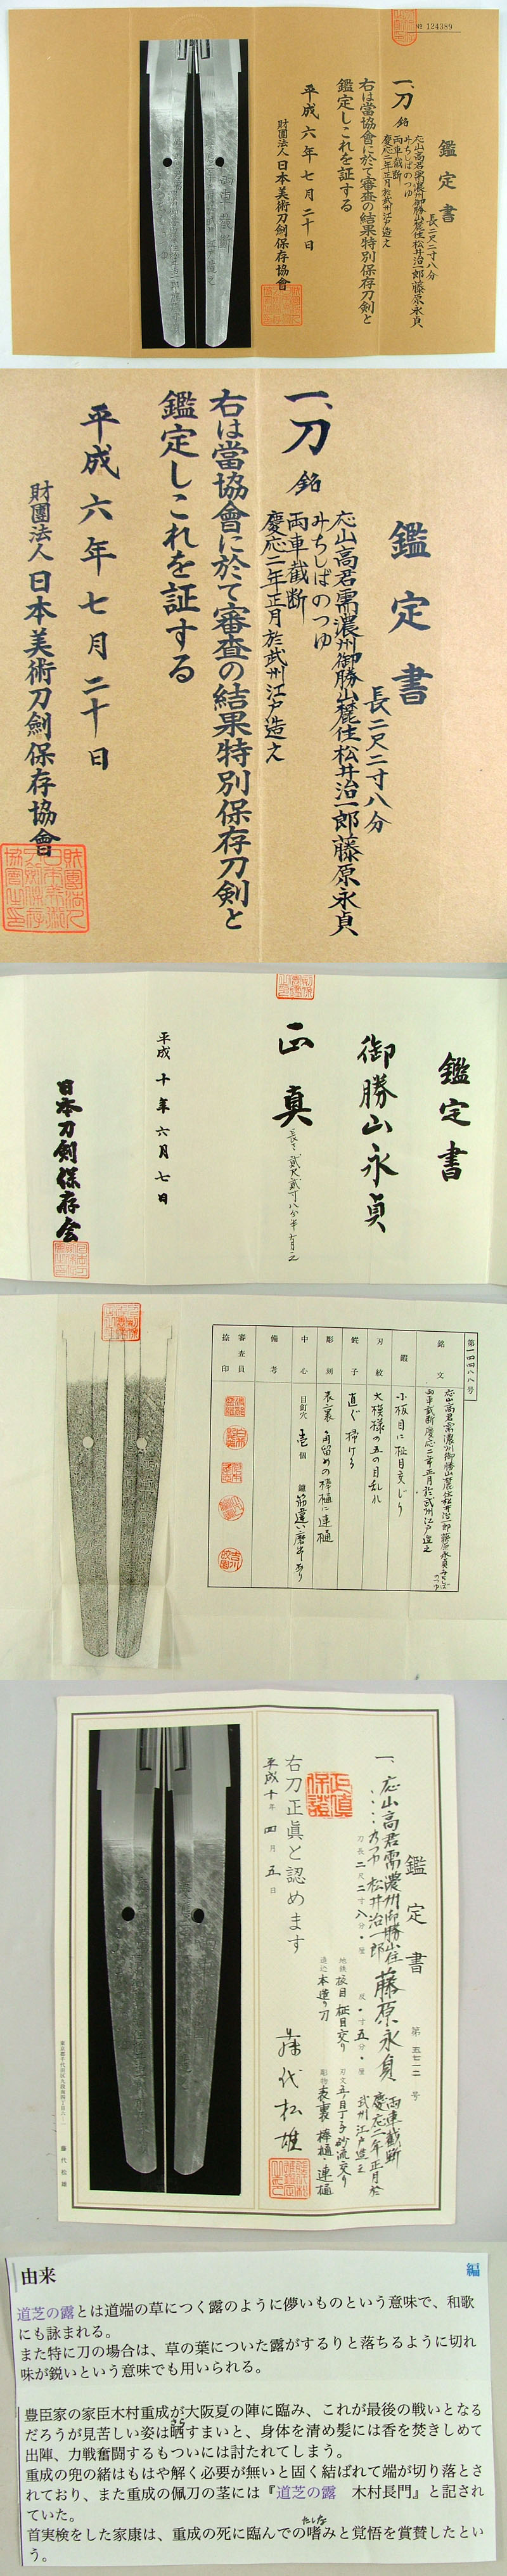 № 124389
鑑定書
一、刀 銘
長二尺二寸八分
応山高君需濃州御勝山麓住松井治一郎藤原永貞
みちしばのつゆ
両車截断
慶応二年正月於武州江戸造之
右は當協會に於て審査の結果特別保存刀剣と
鑑定しこれを証する
平成六年七月二十日
財團法人日本美術刀劍保存協會
鑑定書
長二尺二寸八分
一、刀 銘
応山高君需濃州御勝山麓住松井治一郎藤原永貞
みちしばのつゆ
両車截断
慶応二年正月於武州江戸造之
右は當協會に於て審査の結果特別保存刀剣と
鑑定しこれを証する
平成六年七月二十日
財團法人日本美術刀劍保存協會
鑑定書
御勝山永貞
正真
長さ 貳尺貳寸八分半
平成十年六月七日
日本刀剣保存会
第一四四八八号
銘文
応山高君需濃州御勝山麓住松井治一郎藤原永貞みちしばのつゆ
両車截断慶応二年正月於武州江戸造之
鍛
小板目に柾目交じり
刃紋
大模様の五の目乱れ
鋩子
直ぐ掃ける
彫刻
表裏角留めの棒樋に連樋
中心
目釘穴 壱個 鑢 筋違い磨半あり
備考
審査員捺印
鑑定書
第五七二一号
一、応山高君需濃州御勝山住 藤原永貞
松井治一郎
両車截断
慶応二年正月於
武州江戸造之
刀長二尺二寸八分・厘 反・寸五分・厘
地鉄 板目 柾目交り
刃文 五ノ目丁子砂流交り
造込 本造り刀
彫物 表裏 棒樋・連樋
正真保証
右刀正眞と認めます
平成十年四月五日
藤代松雄
東京都千代田区九段南四丁目
藤代松雄
由来
編
道芝の露とは道端の草につく露のように儚いものという意味で、和歌
にも詠まれる。
また特に刀の場合は、草の葉についた露がするりと落ちるように切れ
味が鋭いという意味でも用いられる。
豊臣家の家臣木村重成が大阪夏の陣に臨み、これが最後の戦いとなる
だろうが見苦しい姿は晒すまいと、身体を清め髪には香を焚きしめて
出陣、力戦奮闘するもついには討たれてしまう。
重成の兜の緒はもはや解く必要が無いと固く結ばれて端が切り落とさ
れており、また重成の佩刀の茎には『道芝の露　木村長門』と記され
ていた。
首実検をした家康は、重成の死に臨んでの嗜みと覚悟を賞賛したとい
う。